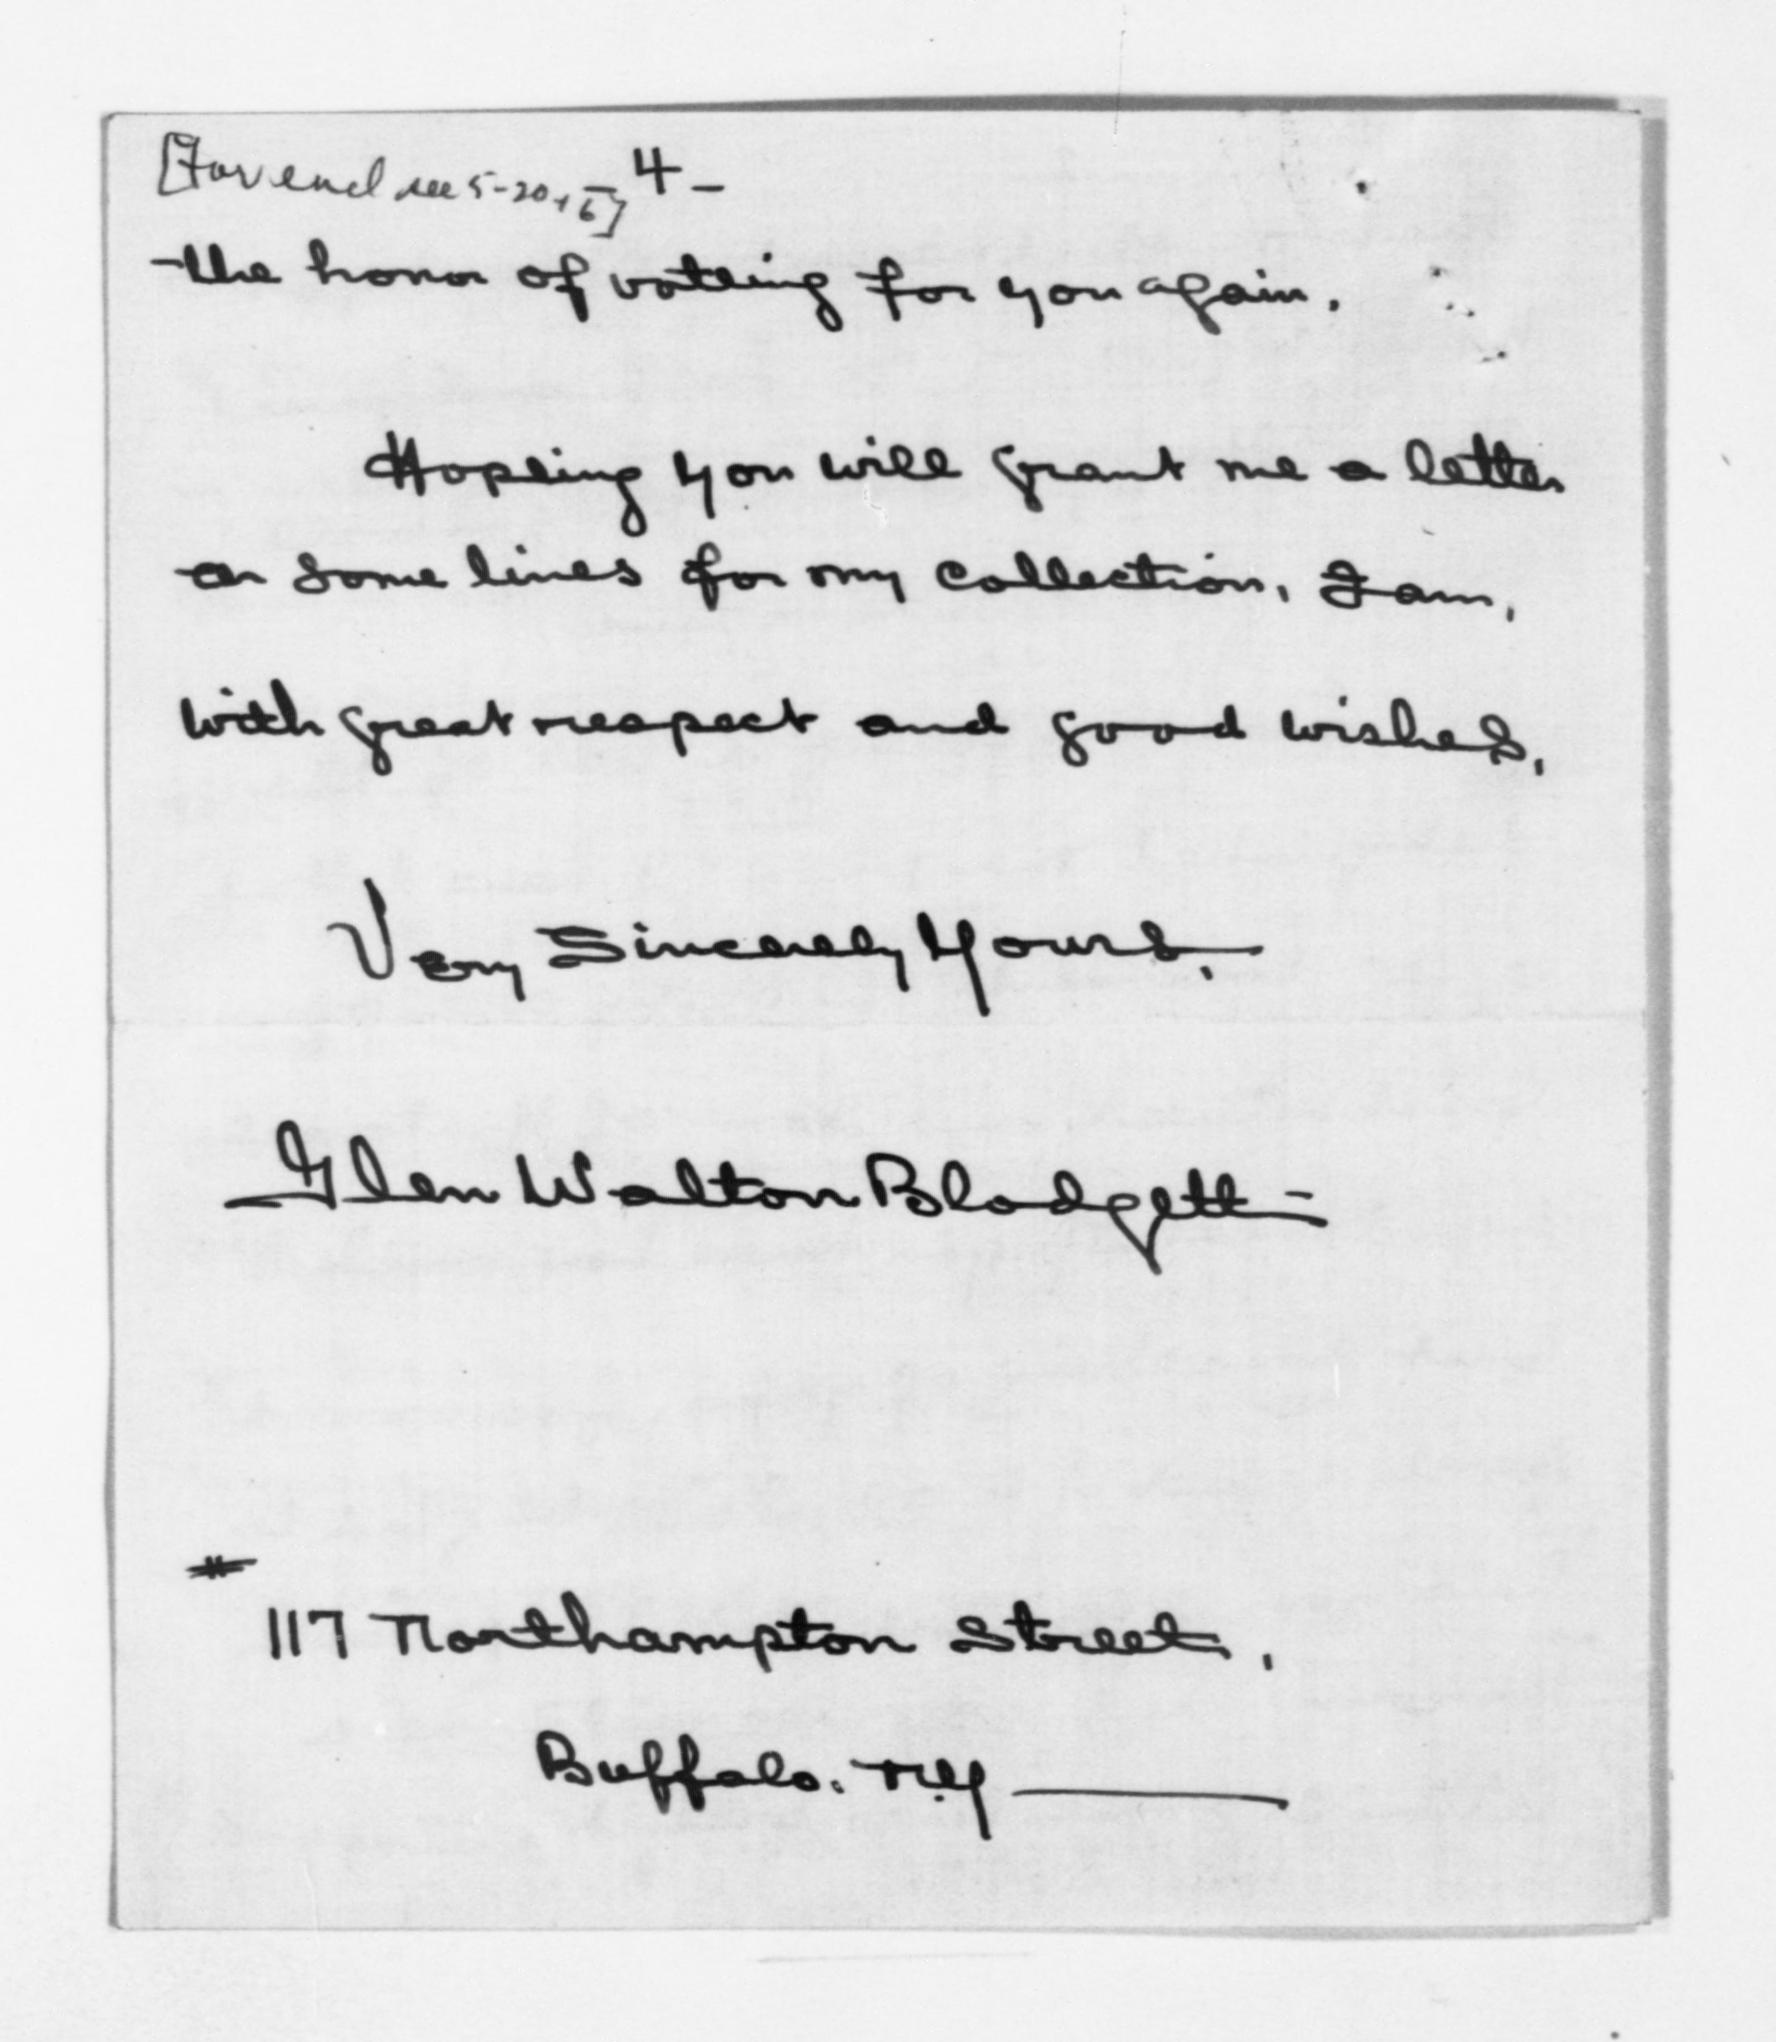 [For encl see 5-20-15] 4-
the honor of voting for you again.
Hoping you will grant me a letter
or some lines for my collection, I am,
with great respect and good wishes,
Very Sincerely Yours,
Glen Walton Blodgett -
117 Northampton Street,
Buffalo. N.Y